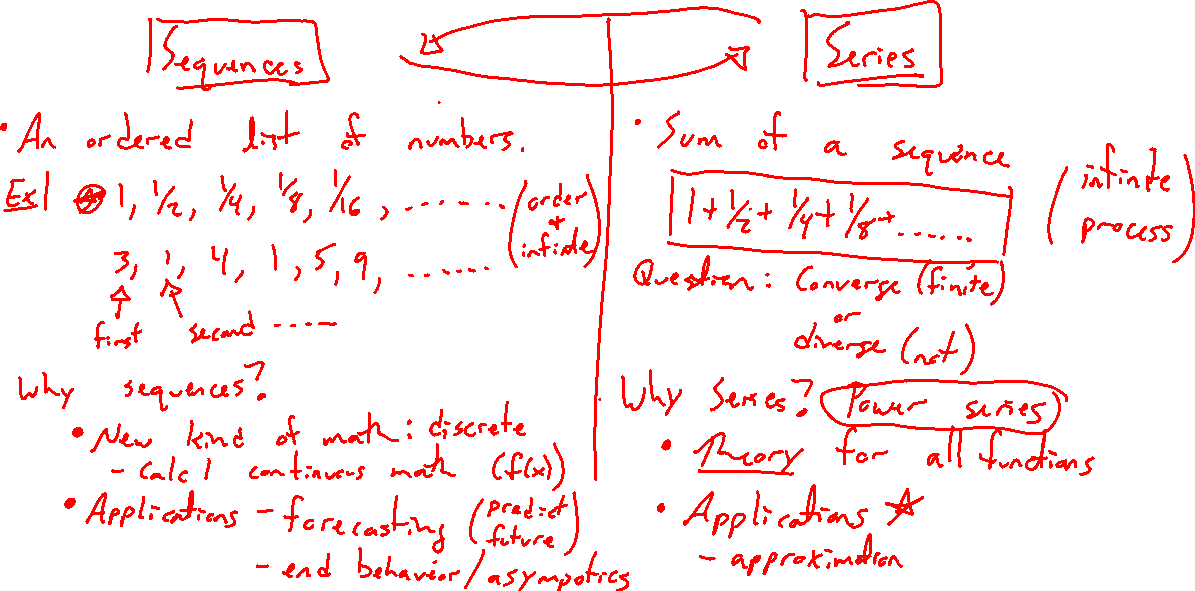 Sequences
• An ordered list of numbers.
Ex| 1, 1/2, 1/4, 1/8, 1/16, ........ (order + infinite)
3, 1, 4, 1, 5, 9, ......
first second .....
Why sequences?
• New kind of math: discrete
- Calc 1 continuous math (f(x))
• Applications - forecasting (predict future)
- end behavior/asympotics
Series
• Sum of a sequence
1 + 1/2 + 1/4 + 1/8 + ...... (infinite process)
Question: Converge (finite)
or
diverge (not)
Why Series? Power series
• Theory for all functions
• Applications ☆
- approximation